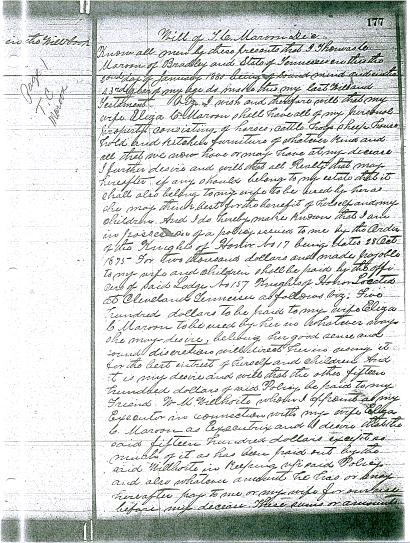 177
Will of T. C. Maroon Dec.
in the Will book
Page 1
T. C.
Maroon
Know all men by these presents that I Thomas C.
Maroon of Bradley and State of Tennessee on this the
day of January 1881 being of sound mind and in the
year of my age do make this my last Will and
Testament. I wish and therefore will that my
wife Eliza C Maroon shall have all of my personal
property consisting of horses, cattle, hogs, sheep, house
hold and kitchen furniture of whatever kind and
all that we now have or may have at my decease
I further desire and will that all Realty that may
hereafter, if any should belong to my estate that it
shall also belong to my wife to be used by her as
she may think best for the benefit of herself and my
children. And I do hereby make known that I am
in possession of a policy issued to me by the order
of the Knights of Honor No 17 being dated 28 Oct
1875 For two thousand dollars and made payable
to my wife and children shall be paid by the offi
cers of said Lodge No 157 Knights of Honor located
at Cleveland Tennessee as follows Viz: Five
hundred dollars to be paid to my wife Eliza
C Maroon to be used by her in whatever way
she may desire, believing her good sense and
sound discretion will direct her in using it
for the best interest of herself and children. And
it is my desire and will that the other fifteen
hundred dollars of said Policy be paid to my
Friend W. M. Willhoite whom I appoint as my
Executor in connection with my wife Eliza
C. Maroon as Executrix and I desire that the
said fifteen hundred dollars except so
much of it as has been paid out by the
said Willhoite in keeping up said Policy
and also whatever amount he has or may
hereafter pay to me or my wife for our use
before my decease These sums or amounts